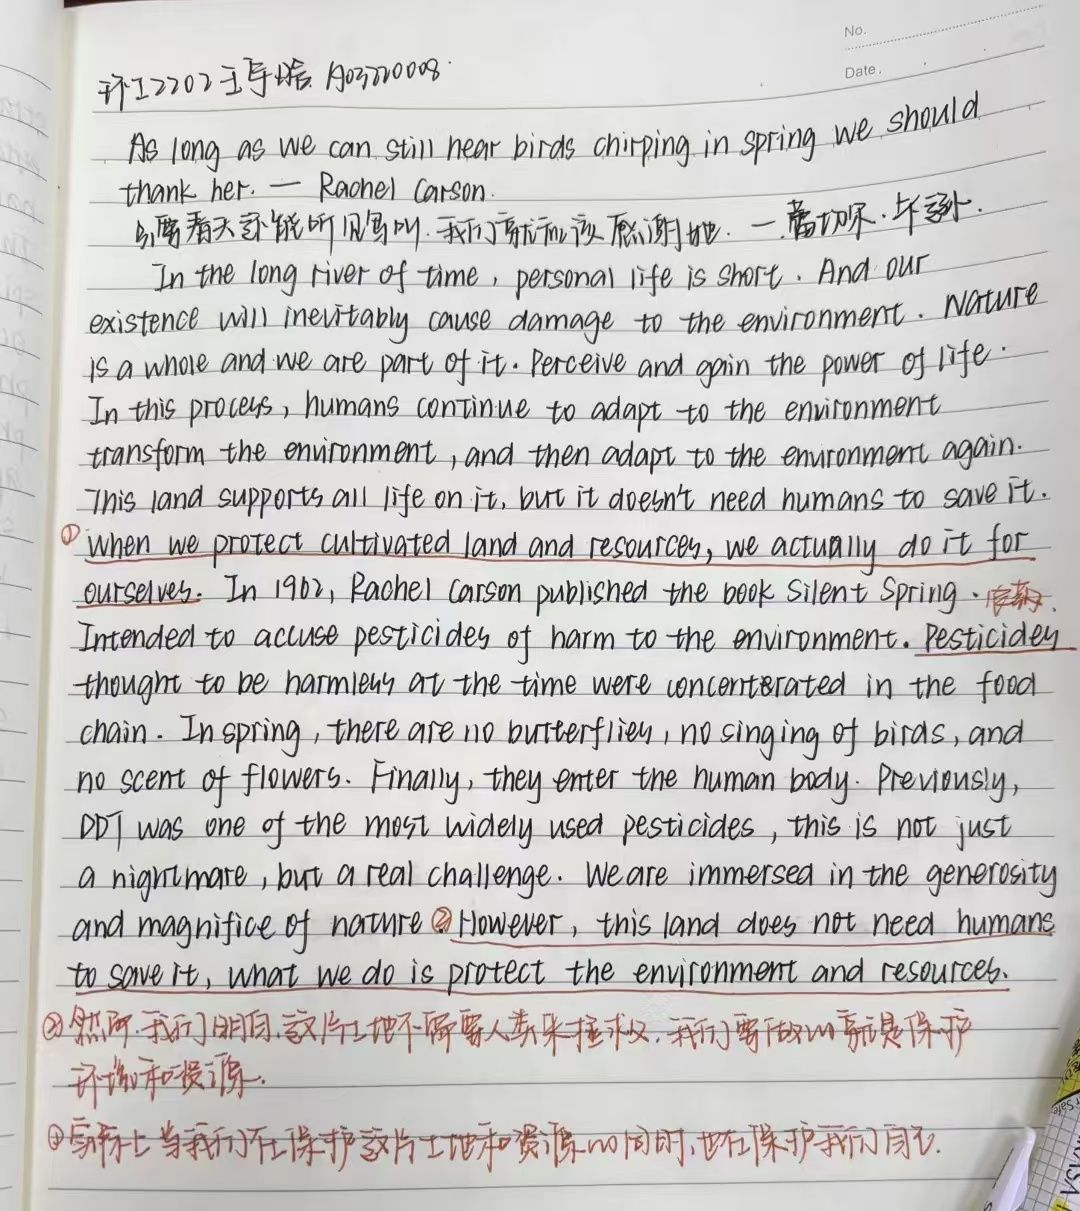 No.
Date.
环工2202 王 A03220008.
As long as we can still hear birds chirping in spring we should
thank her. — Rachel Carson.
只要春天还能听见鸟叫.我们就应该感谢她. 一. 蕾切尔.卡逊.
In the long river of time, personal life is short. And our
existence will inevitably cause damage to the environment. Nature
is a whole and we are part of it. Perceive and gain the power of life.
In this process, humans continue to adapt to the environment
transform the environment, and then adapt to the environment again.
This land supports all life on it, but it doesn't need humans to save it.
① When we protect cultivated land and resources, we actually do it for
ourselves. In 1962, Rachel Carson published the book Silent Spring.
Intended to accuse pesticides of harm to the environment. Pesticides
thought to be harmless at the time were concenterated in the food
chain. In spring, there are no butterflies, no singing of birds, and
no scent of flowers. Finally, they enter the human body. Previously,
DDT was one of the most widely used pesticides, this is not just
a nightmare, but a real challenge. We are immersed in the generosity
and magnifice of nature. ② However, this land does not need humans
to save it, what we do is protect the environment and resources.
② 然而.我们明白,这片土地不需要人类来拯救.我们要做的就是保护
环境和资源.
① 实际上当我们在保护这片土地和资源的同时,也在保护我们自己.